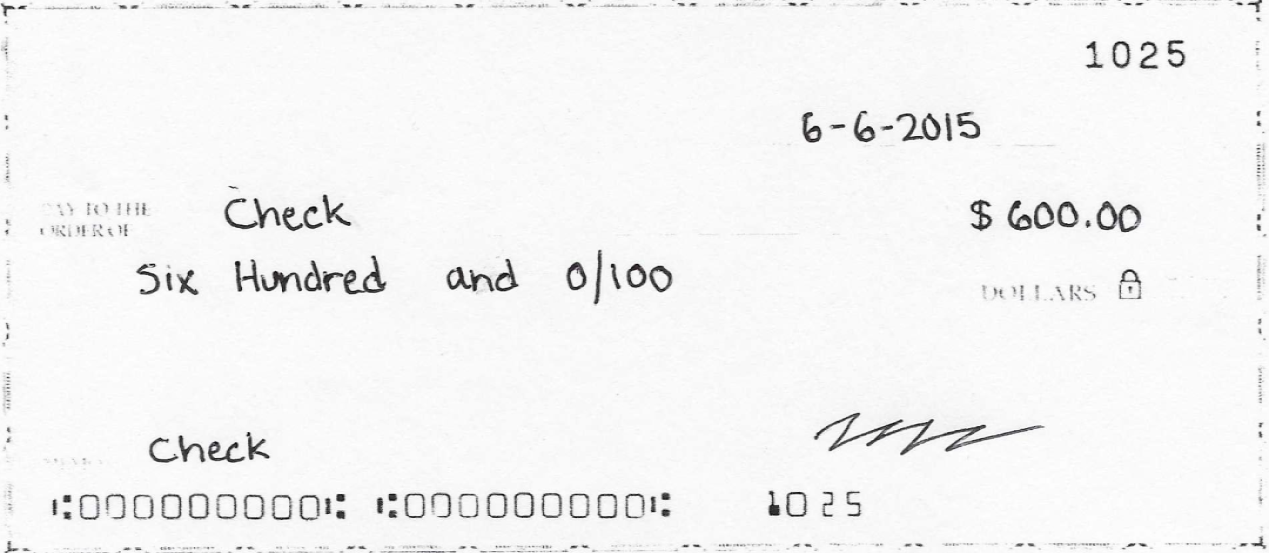 1025
6-6-2015
PAY TO THE
ORDER OF
Check
$ 600.00
Six Hundred and 0/100
DOLLARS
Check
⑆000000000⑆ ⑆000000000⑆ 1025